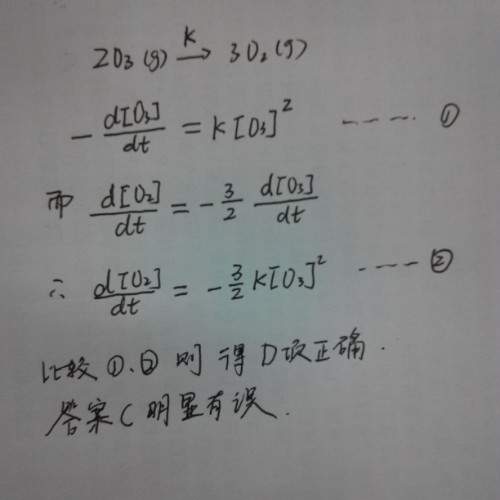 2O₃(g) —K→ 3O₂(g)
- d[O₃]/dt = K[O₃]² ---- ①
而 d[O₂]/dt = - 3/2 d[O₃]/dt
∴ d[O₂]/dt = - 3/2 K[O₃]² ---- ②
比较①、②则得D项正确.
答案C明显有误.